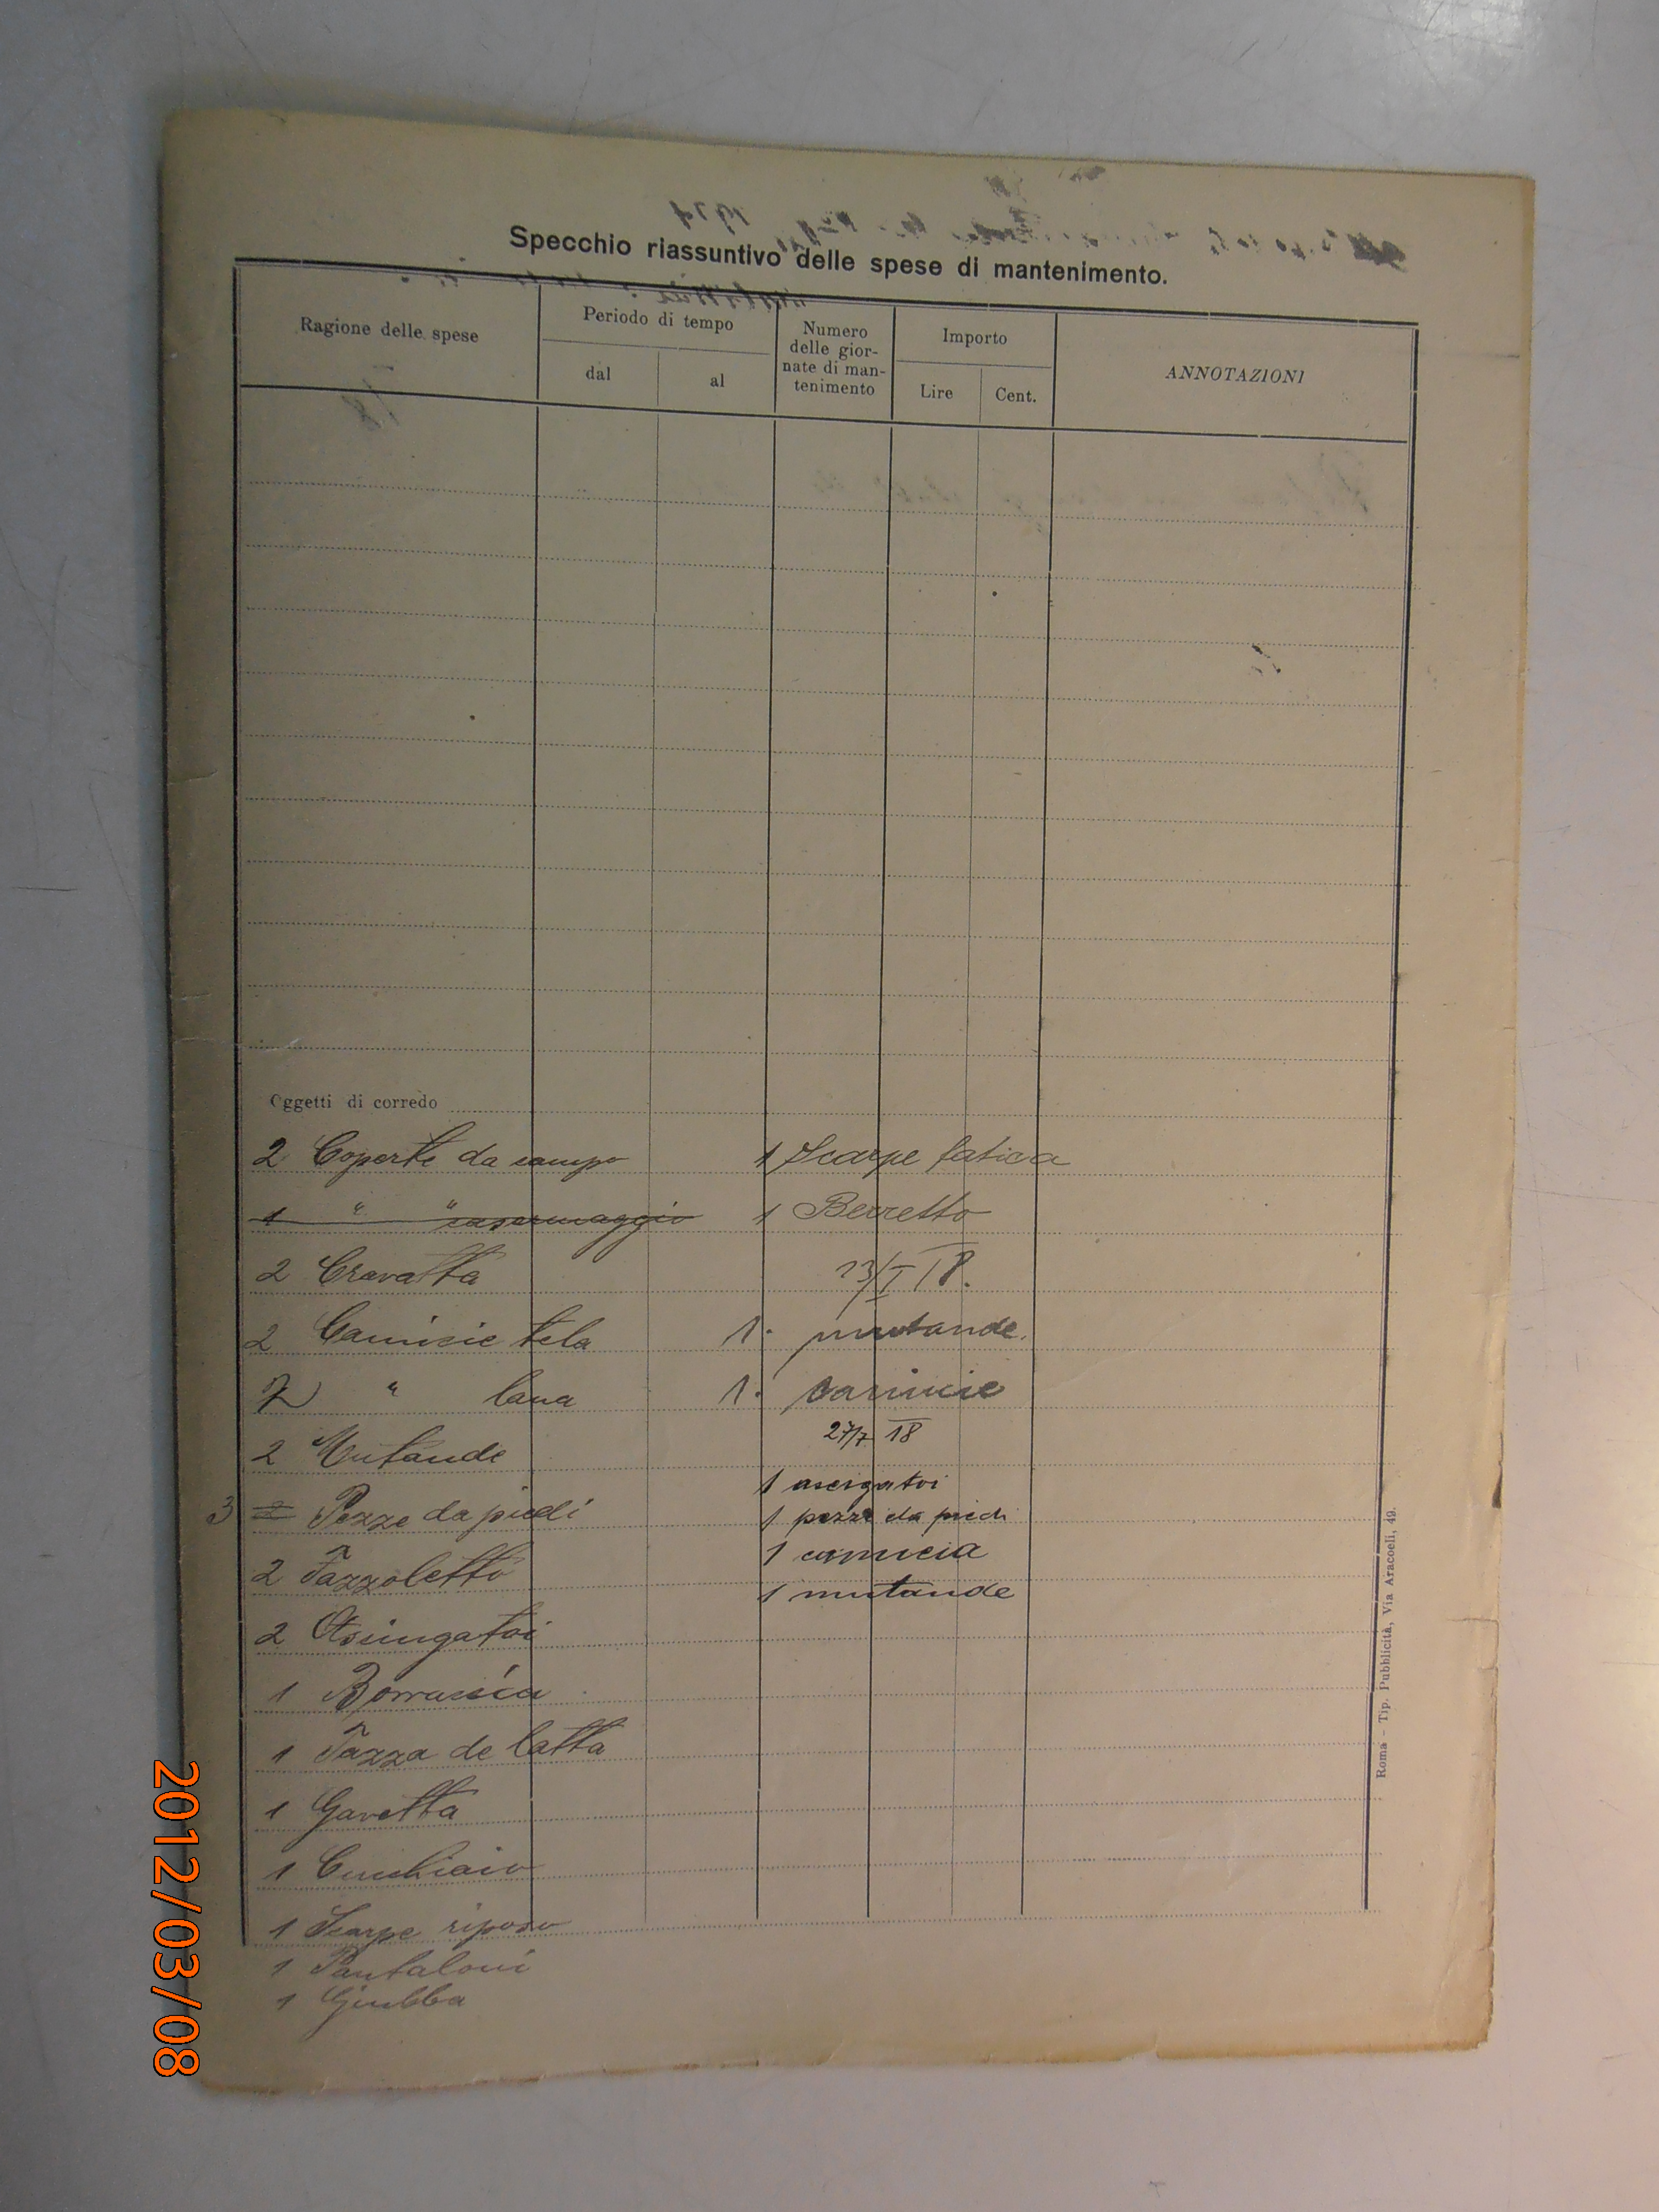 Specchio riassuntivo delle spese di mantenimento.
Ragione delle spese
Periodo di tempo
dal
al
Numero
delle gior-
nate di man-
tenimento
Importo
Lire
Cent.
ANNOTAZIONI
Oggetti di corredo
2 Coperte da campo
1 " " casermaggio
2 Cravatta
2 Camicie tela
2 " lana
2 Mutande
3 2 Pezze da piedi
2 Fazzoletto
2 Asciugatoi
1 Borraccia
1 Tazza de latta
1 Gavetta
1 Cucchiaio
1 Scarpe riposo
1 Pantaloni
1 Giubba
1 Scarpe fatica
1 Berretto
23/I 18.
1. mutande.
1. camicie
27/7 18
1 asciugatoi
1 pezze da piedi
1 camicia
1 mutande
Roma - Tip. Pubblicità, Via Aracoeli, 49.
2012/03/08